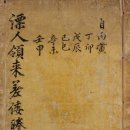 自丙寅
丁卯
戊辰
己巳
壬申
漂人領來差倭謄